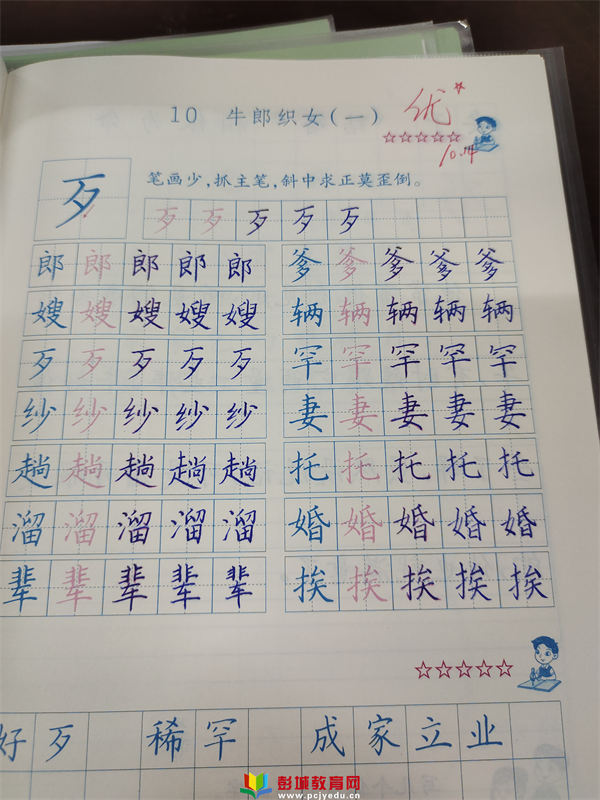 10 牛郎织女(一) 优
10.14
歹 笔画少,抓主笔,斜中求正莫歪倒。
歹 歹 歹 歹 歹
郎 郎 郎 郎 郎 爹 爹 爹 爹 爹
嫂 嫂 嫂 嫂 嫂 辆 辆 辆 辆 辆
歹 歹 歹 歹 歹 罕 罕 罕 罕 罕
纱 纱 纱 纱 纱 妻 妻 妻 妻 妻
趟 趟 趟 趟 趟 托 托 托 托 托
溜 溜 溜 溜 溜 婚 婚 婚 婚 婚
辈 辈 辈 辈 辈 挨 挨 挨 挨 挨
好 歹 稀 罕 成 家 立 业
彭城教育网
www.pcjyedu.cn